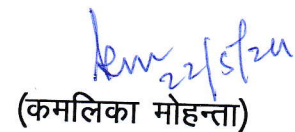 22/5/24
(कमलिका मोहन्ता)